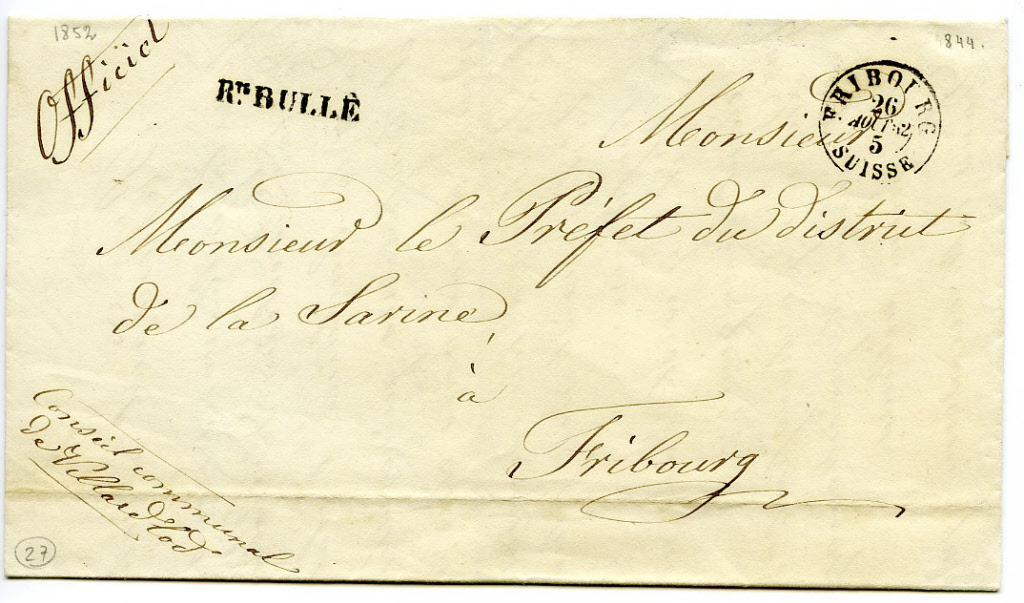 1852
844.
Officiel
Rte BULLE
FRIBOURG
26
AOUT 52
5
SUISSE
Monsieur
Monsieur le Préfet du district
de la Sarine
à
Fribourg
Conseil communal
de Villard
27